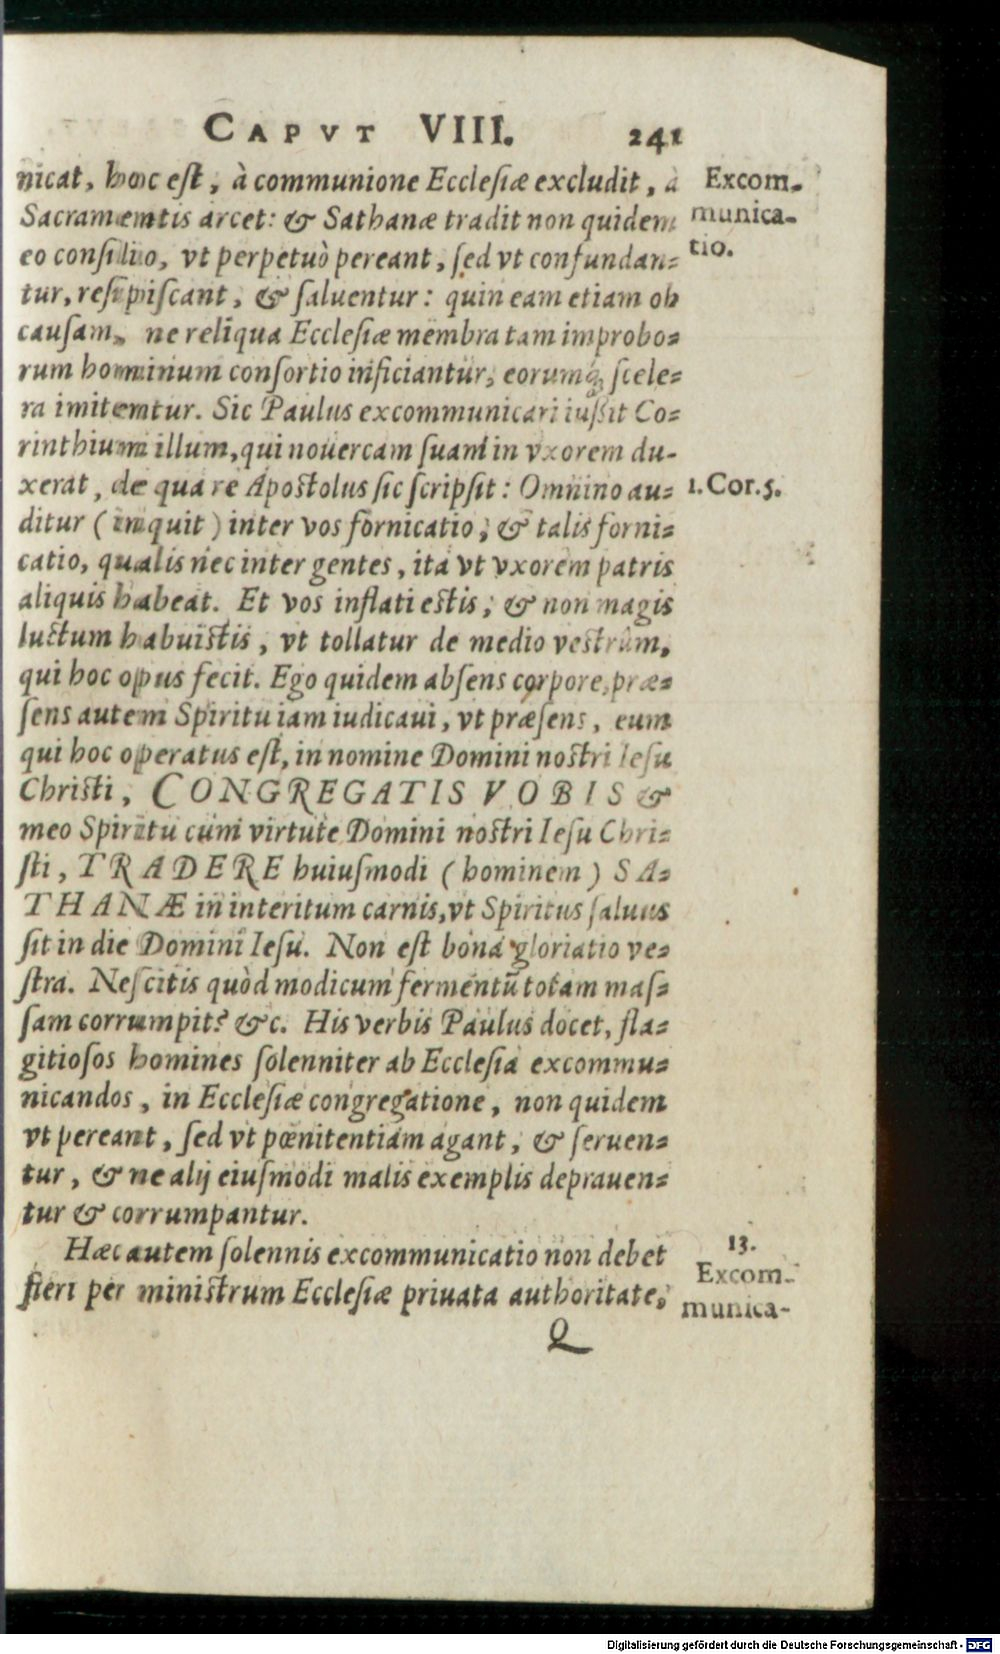 CAPVT VIII. 241
nicat, hoc est, à communione Ecclesiæ excludit, à
Sacramentis arcet: & Sathanæ tradit non quidem
eo consilio, vt perpetuò pereant, sed vt confundan-
tur, resipiscant, & saluentur: quin eam etiam ob
causam, ne reliqua Ecclesiæ membra tam improbo-
rum hominum consortio inficiantur, eorumq; scele-
ra imitentur. Sic Paulus excommunicari iussit Co-
rinthium illum, qui nouercam suam in vxorem du-
xerat, de qua re Apostolus sic scripsit: Omnino au-
ditur (inquit) inter vos fornicatio, & talis forni-
catio, qualis nec inter gentes, ita vt vxorem patris
aliquis habeat. Et vos inflati estis, & non magis
luctum habuistis, vt tollatur de medio vestrûm,
qui hoc opus fecit. Ego quidem absens corpore, præ-
sens autem Spiritu iam iudicaui, vt præsens, eum
qui hoc operatus est, in nomine Domini nostri Iesu
Christi, CONGREGATIS VOBIS &
meo Spiritu cum virtute Domini nostri Iesu Chri-
sti, TRADERE huiusmodi (hominem) SA-
THANÆ in interitum carnis, vt Spiritus saluus
sit in die Domini Iesu. Non est bona gloriatio ve-
stra. Nescitis quòd modicum fermentū totam mas-
sam corrumpit? &c. His verbis Paulus docet, fla-
gitiosos homines solenniter ab Ecclesia excommu-
nicandos, in Ecclesiæ congregatione, non quidem
vt pereant, sed vt pœnitentiam agant, & seruen-
tur, & ne alij eiusmodi malis exemplis deprauen-
tur & corrumpantur.
Hæc autem solennis excommunicatio non debet
fieri per ministrum Ecclesiæ priuata authoritate,
Q
Excom-
munica-
tio.
1. Cor. 5.
13.
Excom-
munica-
Digitalisierung gefördert durch die Deutsche Forschungsgemeinschaft - DFG